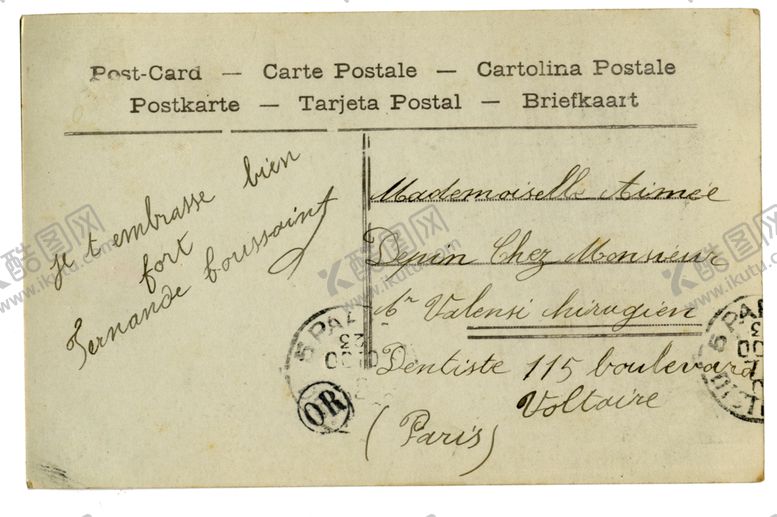 Post-Card — Carte Postale — Cartolina Postale
Postkarte — Tarjeta Postal — Briefkaart
je t'embrasse bien
fort
Fernande Coussaint
Mademoiselle Aimée
Depin Chez Monsieur
Valensi hirugien
Dentiste 115 boulevard
Voltaire
(Paris)
OR
酷图网
www.ikutu.com